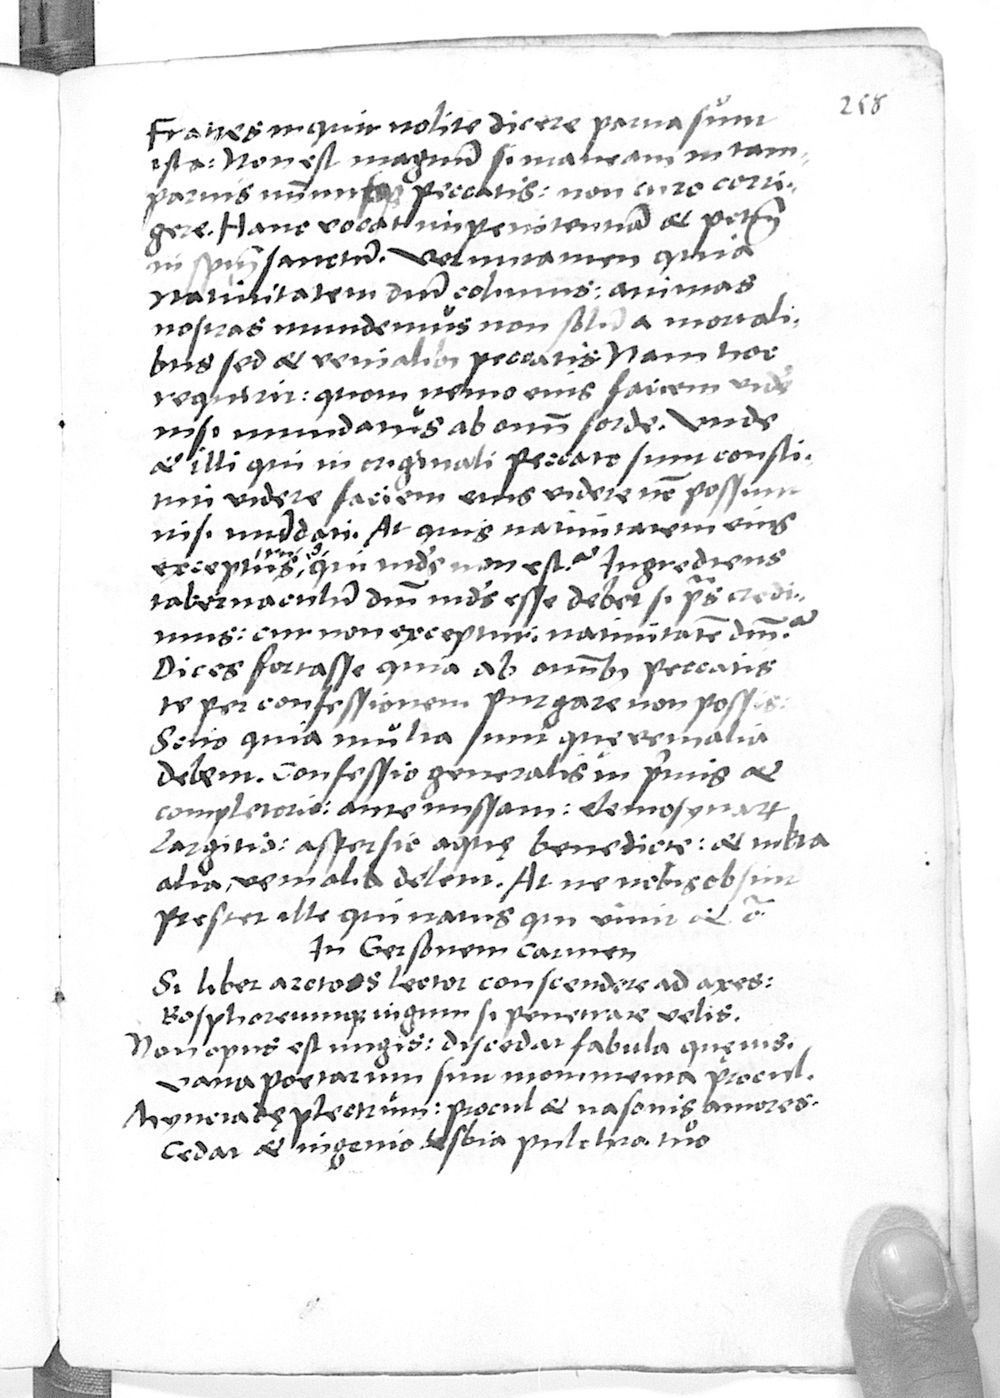 258
Fratres inquit nolite dicere parua sunt
ista: Non est magnũ si maneam in tam-
paruis peccatis: non curo corri-
gere. Hanc vocat impenitentiã & pctm̃
in spm̃ sanctũ. Veruntamen quia
natiuitatem dnĩ colimus: animas
nostras mundemus non solũ a mortali-
bus sed & venialibꝫ peccatis Nam hoc
requirit: quom nemo eius faciem vidẽ
nisi mundatus ab omnĩ sorde. Vnde
& illi qui in originali peccato sunt consti-
tuti videre faciem eius videre nõ possunt
nisi mũdati. At quis natiuitatem eius
excepturus, qui mds non est? Ingrediens
tabernaculũ dnĩ mds esse debet si ps̃ credi-
mus: cur non excepturi natiuitatẽ dnĩ?
Dices fortasse quia ab omnĩbꝫ peccatis
te per confessionem purgare non possis:
Scito quia multa sunt que venialia
delent. Confessio generalis in prĩmis &
completorio: ante missam: elemosynarꝝ
largitio: aspersio aquę benedicte: & multa
alia, venialia delent. At ne nobis obsint
Prestet ille qui natus qui viuit & c̃
In Gersonem carmen
Si liber arctoos lector conscendere ad axes:
Bosphoreumqꝫ iugum si penetrare velis.
Non opus est nugis: discedat fabula quęuis.
Vana poetarum sint monumenta procul.
plectrum: procul & nasonis amores.
Cedat & ingenio lesbia pulchra tuo